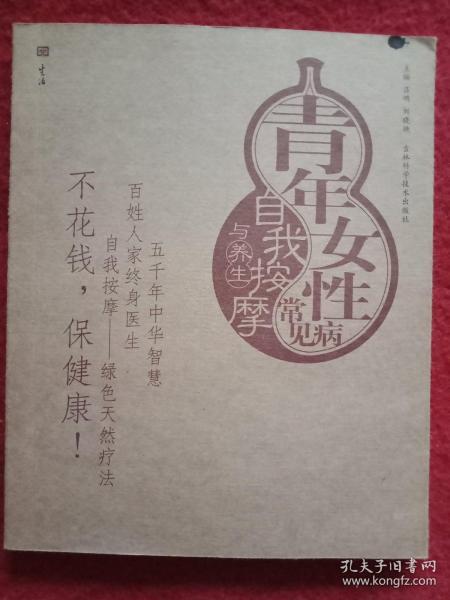 主编 吕明 刘晓艳 吉林科学技术出版社
青年女性
常见病
自我按摩
与养生
五千年中华智慧
百姓人家终身医生
自我按摩——绿色天然疗法
不花钱，保健康！
生活
孔夫子旧书网
www.kongfz.com